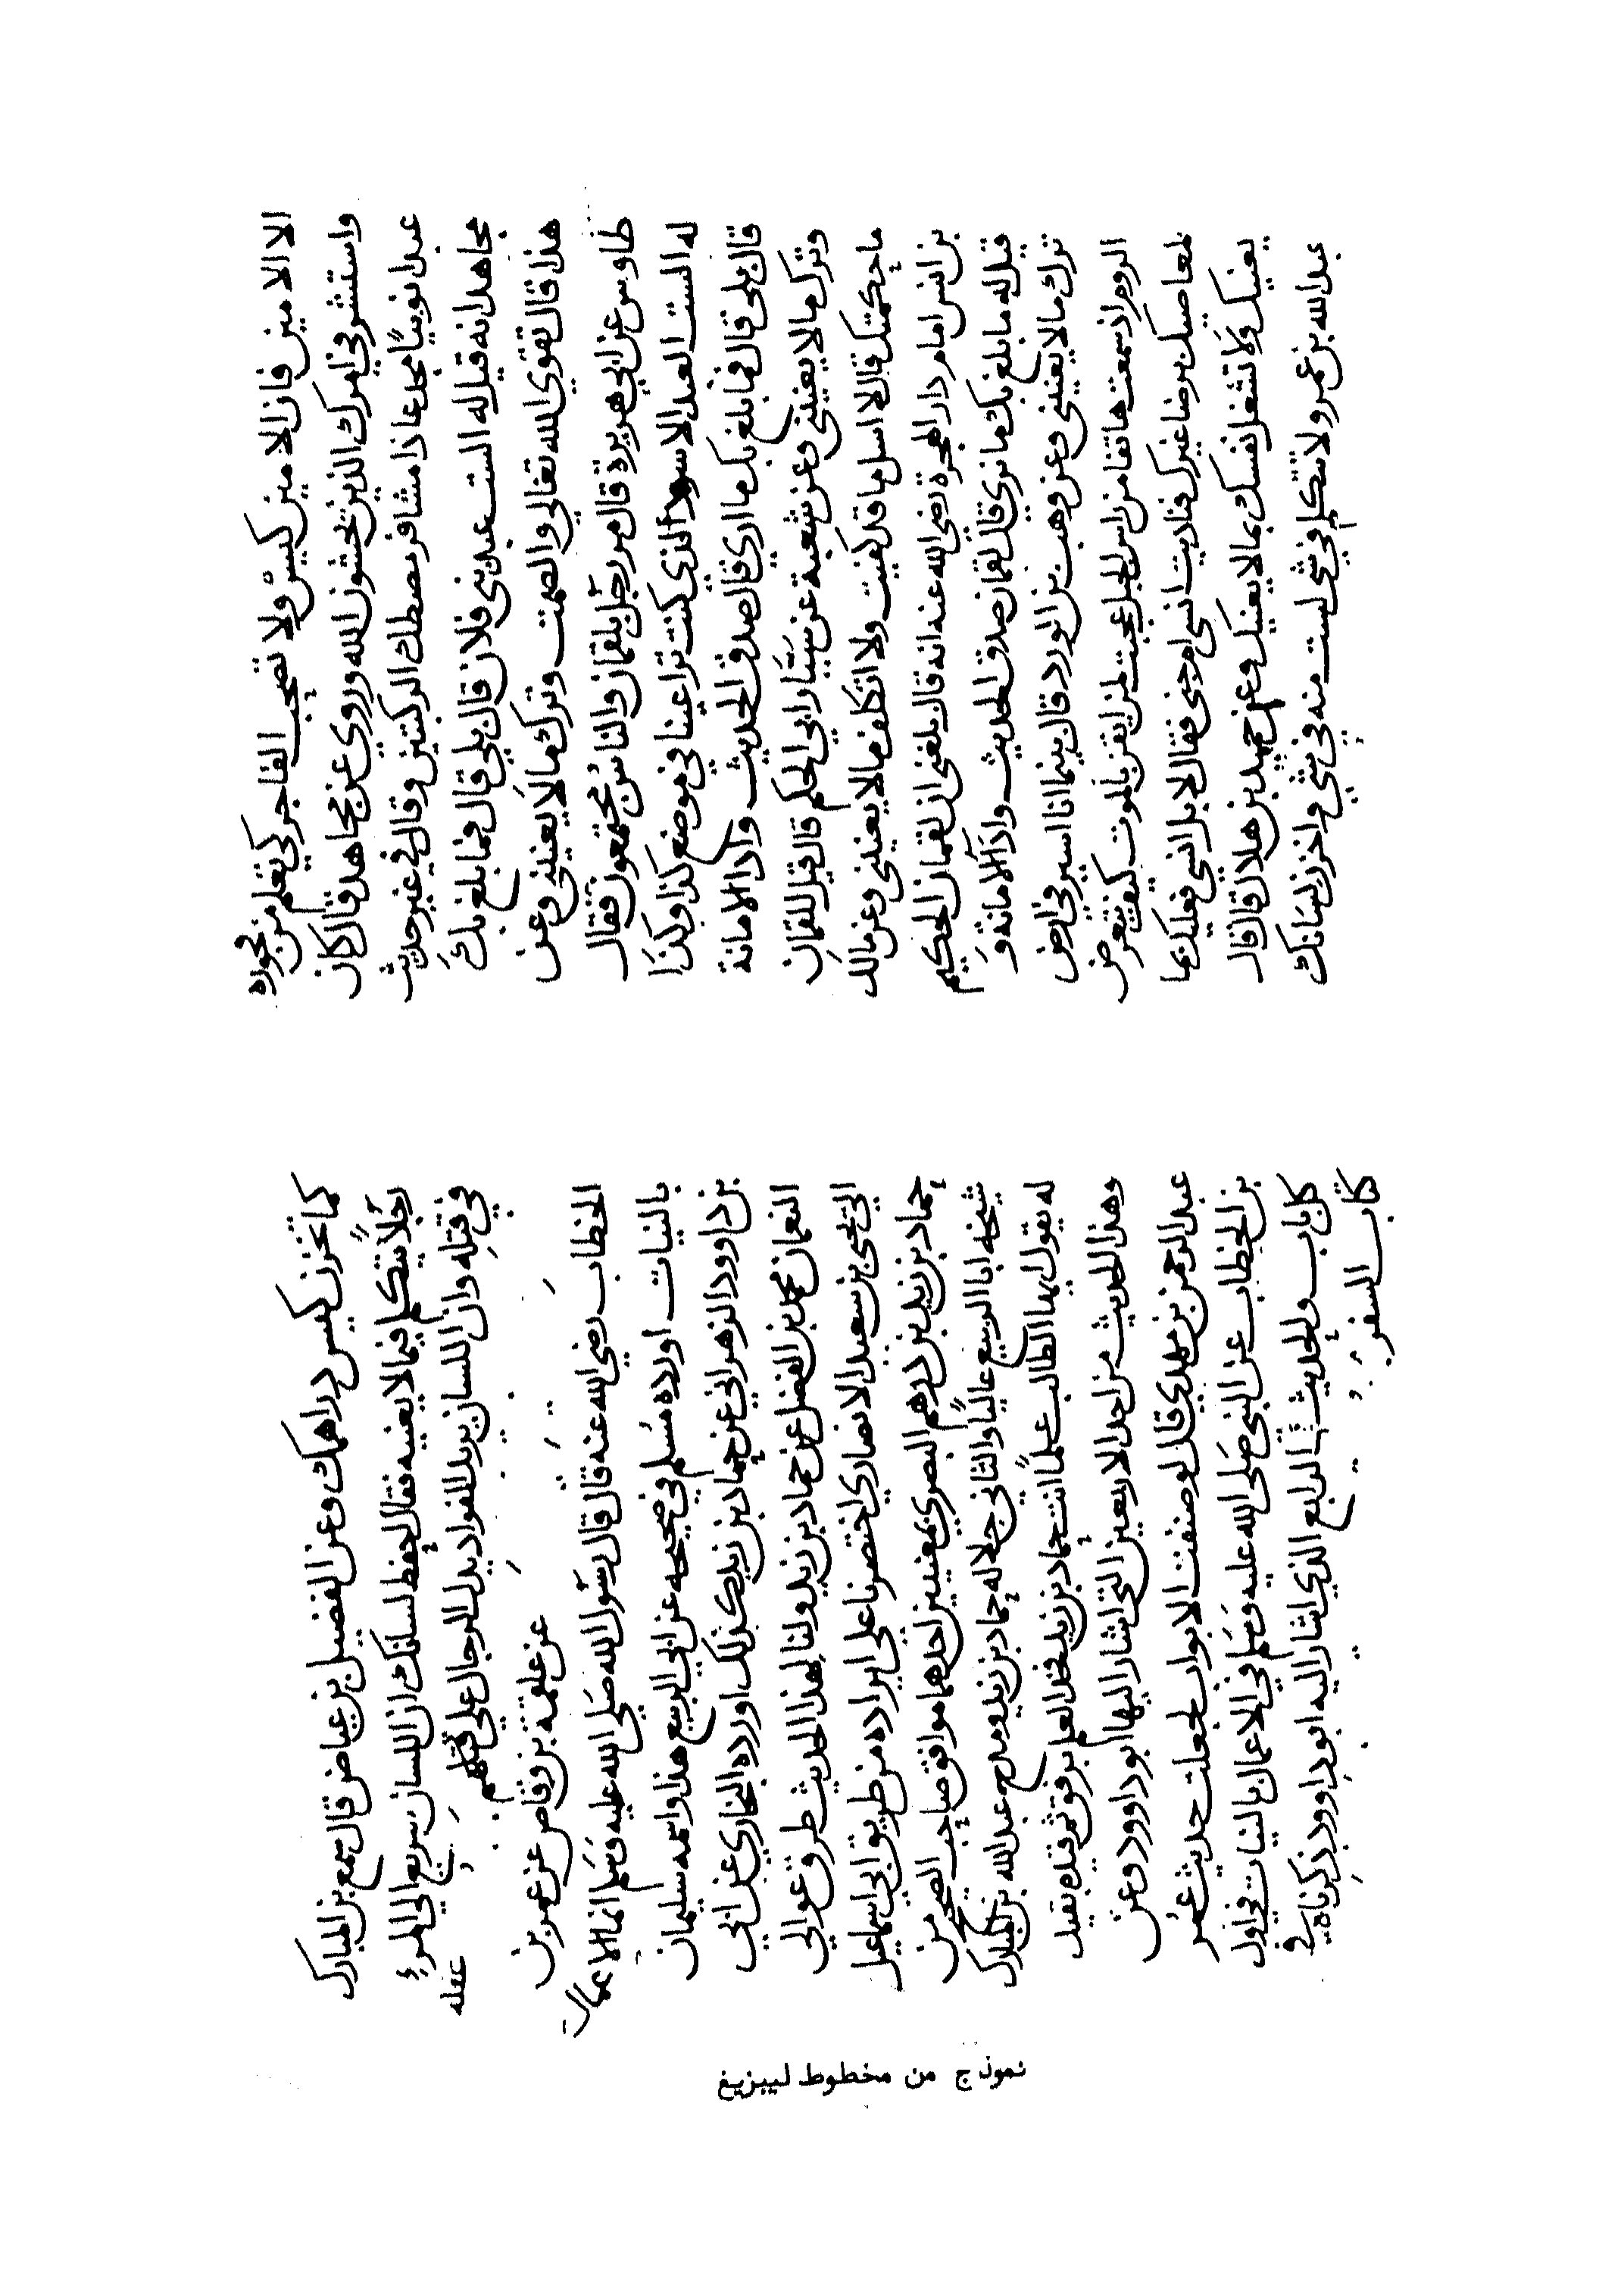 الا الامين فان الامين كبيس ولا تصحب الفاجر كي تعلم من فجوره
واستشر في امرك الذين يخشون الله وروي عن مجاهد قال كان
عبدا نوبيًا مجدعا ذا مشافر مصطك الركبتين وقال في غير حديث
مجاهد انه قيل له الست عبد بني فلان قال بلي قال فما بلغ بك
هذا قال تقوي الله تعالي والصمت وترك ما لا يعنيني وعن
طاوس عن ابي هريرة قال مر رجل بلقمان والناس مجتمعون فقال
له الست العبد الاسود الذي كنت تراعينا في موضع كذا وكذا
قال بلي قال فما بلغ بك ما اري قال صدق الحديث وادا الامانة
وترك ما لا يعنيني وعن شعبة عن سيار ابي الحكم قال قيل للقمان
ما حكمتك قال لا اسل ما قد كفيت ولا اتكلف ما لا يعنيني وعن مالك
بن انس امام دار الهجرة رضي الله عنه انه قال بلغني ان لقمان الحكيم
قيل له ما بلغ بك ما نري قال لقمان صدق الحديث واداَ الامانة و
ترك ما لا يعنيني وعن وهب بن الورد قال بينما انا اسير في ارض
الروم اذ سمعت هاتفا من راس الجبل عجبت لمن ايقن بالموت كيف تتعرض
لمعاصيك برضا غيرك فناديت انسي ام جني فقال لا بل انسي فعليك بما
يعنيك ولا تشغل نفسك بما لا يعنيك وعن حميد بن هلال قال قال
عبد الله بن عمرو لا تتكلم في شي لست منه في شي واخزن لسانك
كما تخزن كيس دراهمك وعن الفضيل بن عياض قال سمع بن المبارك
رجلاً يتكلم فيما لا يعنيه فقال احفظ لسانك ان اللسان سريع الي المرءِ
في قتلِه وان اللسان بريد الفواد يدل الرجال علي عقله
عن علقمة بن وقاص عن عمر بن
الخطاب رضي الله عنه قال قال رسول الله صلي الله عليه وسلم انما الاعمال
بالنيات اورده مُسلم في صحيحه عن ابي الربيع هذا واسمه سليمان
بن داوود الزهراني عن حماد بن زيد كذلك اورده البخاري عن ابي
النعمان محمد بن الفضل عن حماد بن زيد ولنا لهذا الحديث طرق عوالي
الي يحي بن سعيد الانصاري اختصرنا علي ايراده من طريق ابي اسماعيل
حماد بن زيد بن درهم البصري بمعنيين احدهما موافق صاحب الصحيح من
شيخه ابا الربيع عاليًا والثاني جلاله حماد بن زيد ومدح عبد الله بن المبارك
له يقول ايها الطالب علمًا انت حماد بن زيد فخذ العلم برفق ثم قيده بقيد
وهذا الحديث من احد الاربعين التي اشار اليها ابو داوود وعن
عبد الرحمن بن مهدي قال لو صنفت الابواب لجعلت حديث عمر
بن الخطاب عن النبي صلي الله عليه وسلم في الاعمال بالنيات في اول
كل باب والحديث الرابع الذي اشار اليه ابو داوود ذكرناه في
كتاب السفر
نموذج من مخطوط ليبزيغ